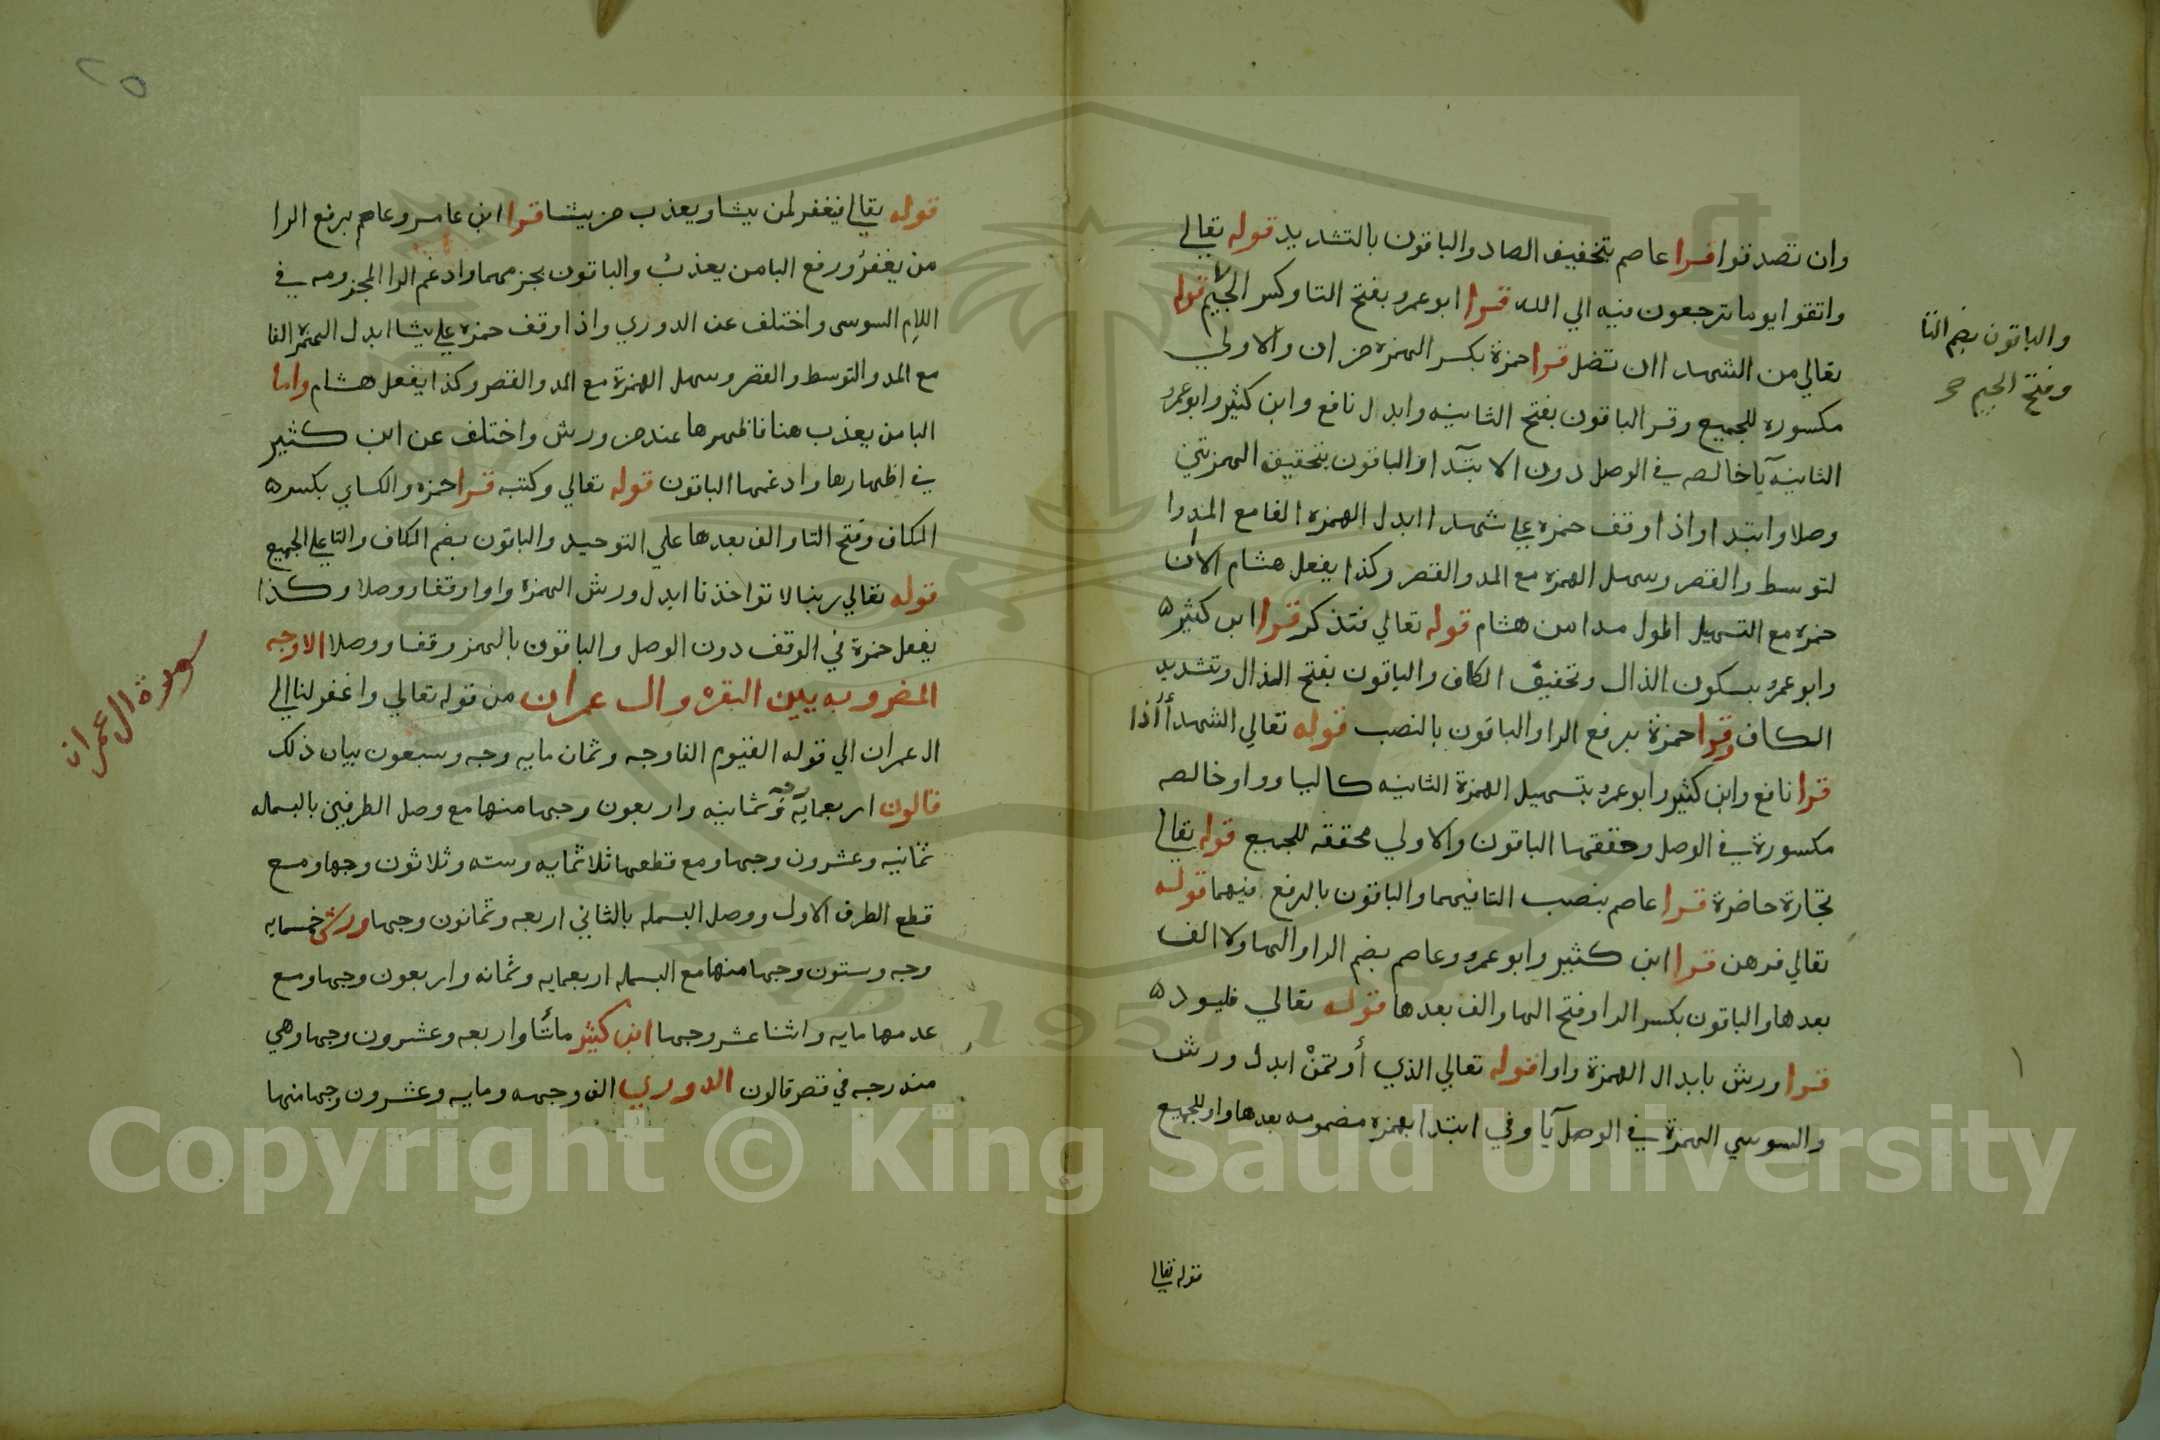 وان تصدقوا قرا عاصم بتخفيف الصاد والباقون بالتشديد قوله تعالي
واتقوا يوما ترجعون فيه الي الله قرا ابو عمرو بفتح التا وكسر الجيم قوله
والباقون بضم التا
وفتح الجيم صح
تعالي من الشهدا ان تضل قرا حمزة بكسر الهمزه من ان والاولي
مكسوره للجميع وقر الباقون بفتح الثانيه وابدل نافع وابن كثير وابو عمرو
الثانيه يآ خالصه في الوصل دون الابتدا والباقون بتحقيق الهمزتين
وصلا وابتدا واذا وقف حمزه علي شهدا ابدل الهمزه الفا مع المد وا
لتوسط والقصر وسهل الهمزه مع المد والقصر وكذا يفعل هشام الا ان
حمزه مع التسهيل اطول مدا من هشام قوله تعالي فتذكر قرا ابن كثير
وابو عمرو بسكون الذال وتخفيف الكاف والباقون بفتح الذال وتشديد
الكاف وقرا حمزة برفع الرا والباقون بالنصب قوله تعالي الشهدآ أذا
قرا نافع وابن كثير وابو عمرو بتسهيل الهمزة الثانيه كاليا وواو خالصه
مكسورة في الوصل وحققها الباقون والاولي محققه للجميع قوله تعالي
تجارة حاضرة قرا عاصم بنصب التا فيهما والباقون بالرفع فيهما قوله
تعالي فرهن قرا ابن كثير وابو عمرو وعاصم بضم الرا والها ولا الف
بعدها والباقون بكسر الرا وفتح الها والف بعدها قوله تعالي فليود
قرا ورش بابدال الهمزة واوا قوله تعالي الذي أوتمن ابدل ورش
والسوسي الهمزة في الوصل يآ وفي ابتدا بهمزه مضمومه بعدها واو للجميع
قوله تعالي
٢٥
قوله تعالي فيغفر لمن يشا ويعذب من يشا قرا ابن عامر وعاصم برفع الرا
من يغفر ورفع البا من يعذب والباقون بجزمهما وادغم الرا المجزومه في
اللام السوسي واختلف عن الدوري واذا وقف حمزه علي يشا ابدل الهمزه الفا
مع المد والتوسط والقصر وسهل الهمزة مع المد والقصر وكذا يفعل هشام واما
البا من يعذب هنا فاظهرها عندمن ورش واختلف عن ابن كثير
في اظهارها وادغمها الباقون قوله تعالي وكتبه قرا حمزه والكساي بكسر
الكاف وفتح التا والف بعدها علي التوحيد والباقون بضم الكاف والتا علي الجميع
قوله تعالي ربنا لا تواخذنا ابدل ورش الهمزة واوا وقفا ووصلا وكذا
يفعل حمزة في الوقف دون الوصل والباقون بالهمز وقفا ووصلا الاوجه
المضروبه بين البقره وال عمران من قوله تعالي واغفر لنا الي
ال عمران الي قوله القيوم الفا وجه وثمان مايه وجه وسبعون بيان ذلك
قالون اربعمايه وثمانيه واربعون وجها منها مع وصل الطرفين بالبسمله
ثمانيه وعشرون وجها ومع قطعها ثلاثمايه وسته وثلاثون وجها ومع
قطع الطرف الاول ووصل البسمله بالثاني اربعه وثمانون وجها ورش خمسمايه
وجه وستون وجها منها مع البسمله اربعمايه وثمانه واربعون وجها ومع
عدمها مايه واثنا عشر وجها ابن كثير مائتا واربعه وعشرون وجها وهي
مندرجه في قصر قالون الدوري الف وجهه ومايه وعشرون وجها منها
سورة ال عمران
Copyright © King Saud University
1957